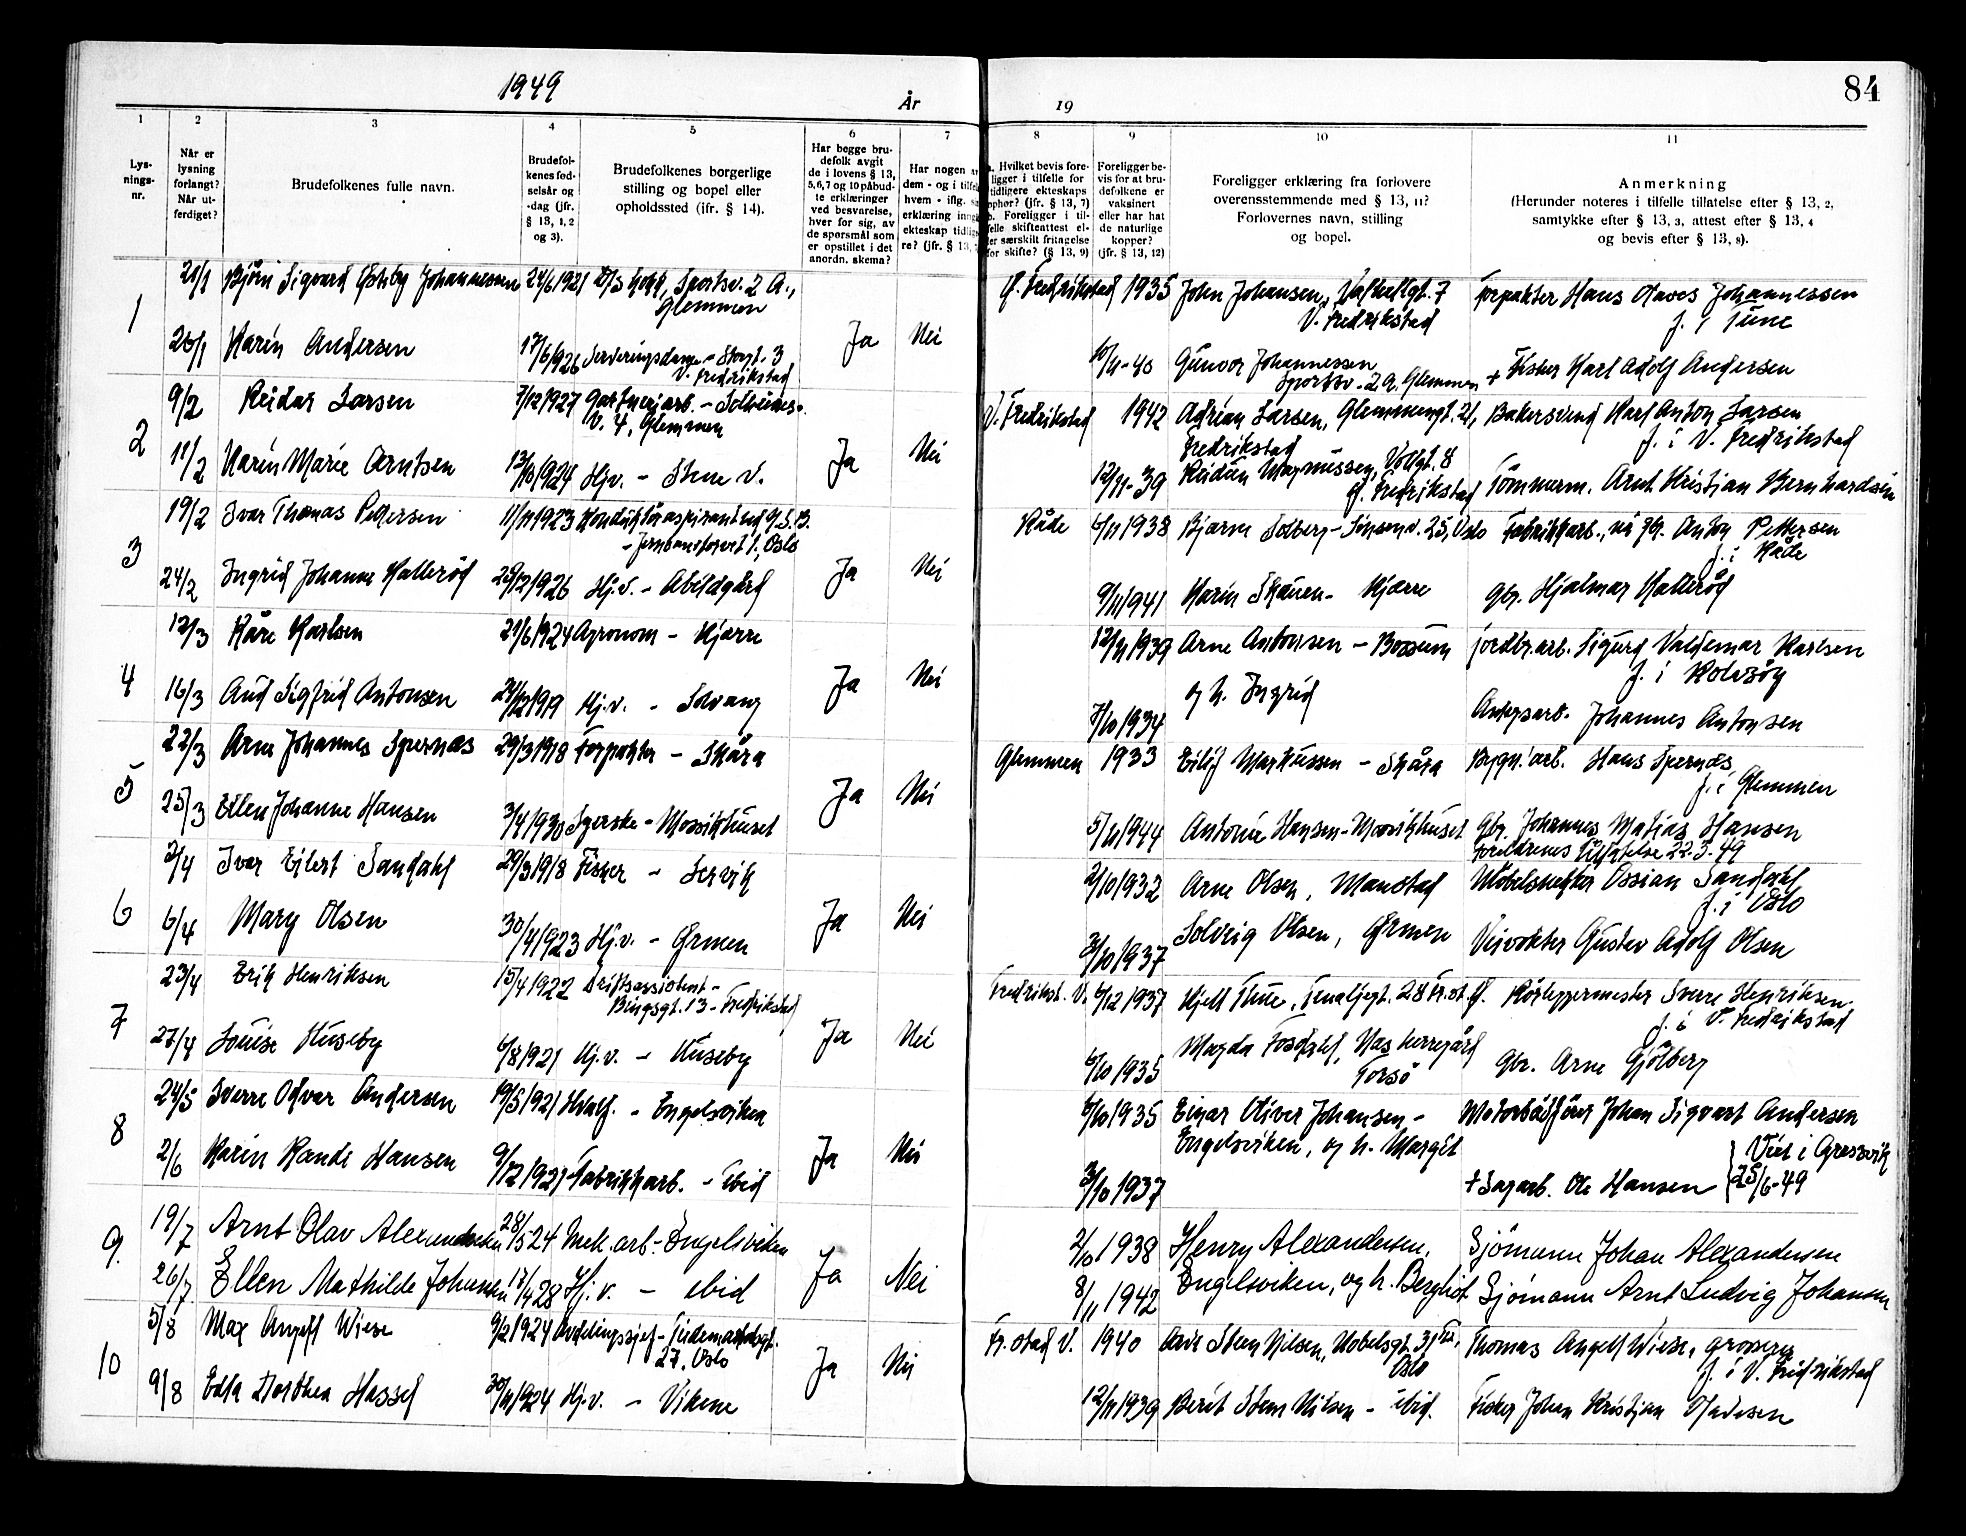 1949
År
19
84
1
2
3
4
5
6
7
8
9
10
11
Lys-
nings-
nr.
Når er
lysning
forlangt?
Når ut-
ferdiget?
Brudefolkenes fulle navn.
Brudefol-
kenes fød-
selsår og
-dag (jfr.
§ 13, 1, 2
og 3).
Brudefolkenes borgerlige
stilling og bopel eller
opholdssted (ifr. § 14).
Har begge bru-
defolk avgit
de i lovens § 13,
5,6,7 og 10 påbud-
te erklæringer
ved besvarelse,
hver for sig, av
de spørsmål som
er opstillet i det
anordn. skema?
Har nogen
dem - og i
hvem - iflg.
erklæring
ekteskap
re? (jfr. § 13,
Hvilket bevis fore-
ligger i tilfelle for
tidligere ekteskaps
ophør? (jfr. § 13, 7)
b. Foreligger i til-
felle skifteattest el-
ler særskilt fritagelse
for skifte? (§ 13, 9)
Foreligger be-
vis for at bru-
defolkene er
vaksinert
eller har hat
de naturlige
kopper?
(jfr. § 13, 12)
Foreligger erklæring fra forlovere
overensstemmende med § 13, 11?
Forlovernes navn, stilling
og bopel.
Anmerkning
(Herunder noteres i tilfelle tillatelse efter § 13, 2,
samtykke efter § 13, 3, attest efter § 13, 4
og bevis efter § 13, 8).
1
21/1 Bjørn Sigvard Johannessen 24/6 1921 Sportsv. 2 A., Fredrikstad 1935 John Johansen, Valhallgt. 7 Forpakter Hans Johannessen
Glemmen V. Fredrikstad f. i Tune
26/1 Karin Andersen 17/6 1926 Serveringsdame - Storgt. 3 Ja Nei 10/11-40 Gunvor Johannessen + Fisker Karl Adolf Andersen
V. Fredrikstad Sportsv. 2 A. Glemmen
2
9/2 Reidar Larsen 7/12 1927 Gartneriarb. - V. Fredrikstad 1942 Adrian Larsen, Glemmengt. 21, Bakersvend Karl Anton Larsen
V. 4, Glemmen Fredrikstad f. i V. Fredrikstad
11/2 Karin Marie Arntsen 13/10 1924 Hj.v. - Ja Nei 12/11-39 Reidun Magnussen, Vollgt. 8 Tømmerm. Arnt Kristian Bernhardsen
Fredrikstad
3
19/2 Ivar Thomas Pettersen 11/11 1923 N.S.B. Råde 4/11 1938 Bjarne Solberg - Sinsenv. 25, Oslo Fabrikkarb., nå gbr. Anton Pettersen
- Jernbanetorvet 1, Oslo f. i Råde
24/2 Ingrid Johanne Kallerød 29/12 1926 Hj.v. - Abildgård Ja Nei 9/11 1941 Karin Skauen - Kjære gbr. Hjalmar Kallerød
4
12/3 Kåre Karlsen 21/6 1924 Agronom - Kjære 12/11 1939 Arne Antonsen - Bossum jordbr.arb. Sigurd Valdemar Karlsen
f. i Rolvsøy
16/3 Aud Sigfrid Antonsen 24/12 1919 Hj.v. - Solvang Ja Nei 7/10 1934 og h. Ingrid Anlegsarb. Johannes Antonsen
5
22/3 Arne Johannes Spernæs 29/3 1918 Forpakter - Skåra Glemmen 1933 Eilif Markussen - Skåra Bygn.arb. Hans Spernæs
f. i Glemmen
25/3 Ellen Johanne Hansen 3/4 1930 Syerske - Mossikhuset Ja Nei 5/11 1944 Antonie Hansen - Mossikhuset Gbr. Johannes Matias Hansen
Foreldrenes tillatelse 22-3-49
6
2/4 Ivar Eilert Sandahl 29/3 1918 Fisker - Lervik 2/10 1932 Arne Olsen, Manstad Møbelsnekker Ossian Sandahl
f. i Oslo
6/4 Mary Olsen 30/4 1923 Hj.v. - Ørmen Ja Nei 3/10 1937 Solveig Olsen, Ørmen Veivokter Gustav Adolf Olsen
7
23/4 Erik Henriksen 15/4 1922 Driftsassistent - Fredrikst. V. 6/12 1937 Kjell Thue, 28 Fr.st. Ø. Rørleggermester Sverre Henriksen
Bingsgt. 13 - Fredrikstad f. i V. Fredrikstad
27/4 Louise Huseby 6/8 1921 Hj.v. - Huseby Ja Nei 6/10 1935 Magda Fosdahl, Vas herregård Gbr. Arne Gjølberg
Torsø
8
24/5 Sverre Odvar Andersen 19/5 1921 Hvalf. - Engelsviken 6/10 1935 Einar Oliver Johansen - Motorbåtfører Johan Sigvart Andersen
Engelsviken, og h. Margit
2/6 Karin Rande Hansen 9/12 1921 Fabrikkarb. - Ibid Ja Nei 3/10 1937 + Sagarb. Ole Hansen Viet i Gressvik
25/6-49
9.
19/7 Arnt Olav Alexandersen 28/5 24 Mek. arb. - Engelsviken 2/10 1938 Henry Alexandersen, Sjømann Johan Alexandersen
26/7 Ellen Mathilde Johansen 17/4 28 Hj.v. - ibid Ja Nei 8/11 1942 Engelsviken, og h. Bergliot Sjømann Arnt Ludvig Johansen
10
5/8 Max Angell Wiese 9/2 1924 Avdelingssjef - Tidemandsgt. Fr.stad V. 1940 Arve Steen Nilsen, Nobelsgt. 31, Thomas Angell Wiese, grosserer
27, Oslo Oslo f. i V. Fredrikstad
9/8 Edla Dorthea Hassel 30/11 1924 Hj.v. - Vikene Ja Nei 12/11 1939 Berit Steen Nilsen - ibid. Fisker Johan Kristian